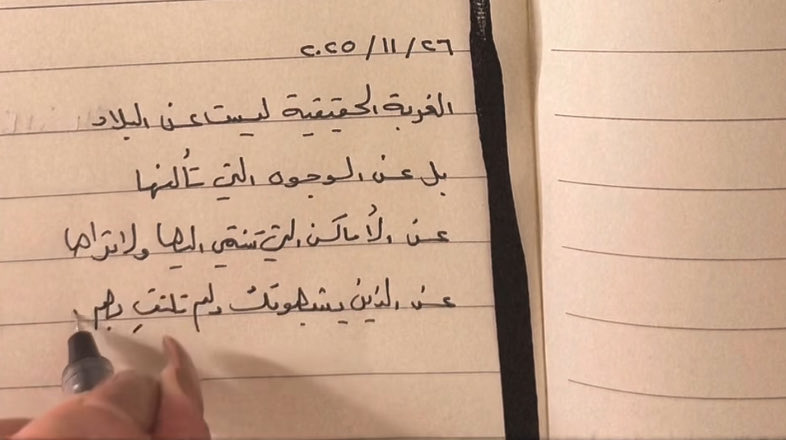 ٢٠٢٥/١١/٢٦
الغربة الحقيقية ليست عن البلاد
بل عن الوجوه التي تألفها
عن الأماكن التي تنتمي اليها ولا تراها
عن الذين يشبهونك ولم تلتقِ بهم.